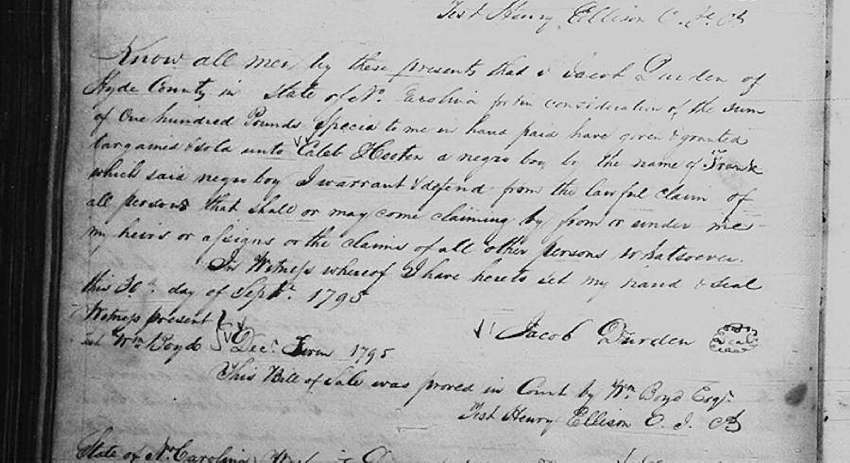 Test Henry Ellison C. Je. Ct
Know all men by these presents that I Jacob Durden of
Hyde County in State of No. Carolina for & in consideration of the sum
of One hundred Pounds Specie to me in hand paid have given & granted
bargained & sold unto Caleb Hooten a negro boy by the name of Frank
which said negro boy I warrant & defend from the lawful claim of
all persons that shall or may come claiming by from or under me
my heirs or assigns or the claims of all other persons whatsoever.
In Witness whereof I have hereto set my hand & seal
this 30th day of Sept. 1795
Witness present
Jacob Durden Seal
Wm Boyd Decr. Term 1795
This Bill of Sale was proved in Court by Wm Boyd Esqr.
Test Henry Ellison C. J. Ct
State of No. Carolina